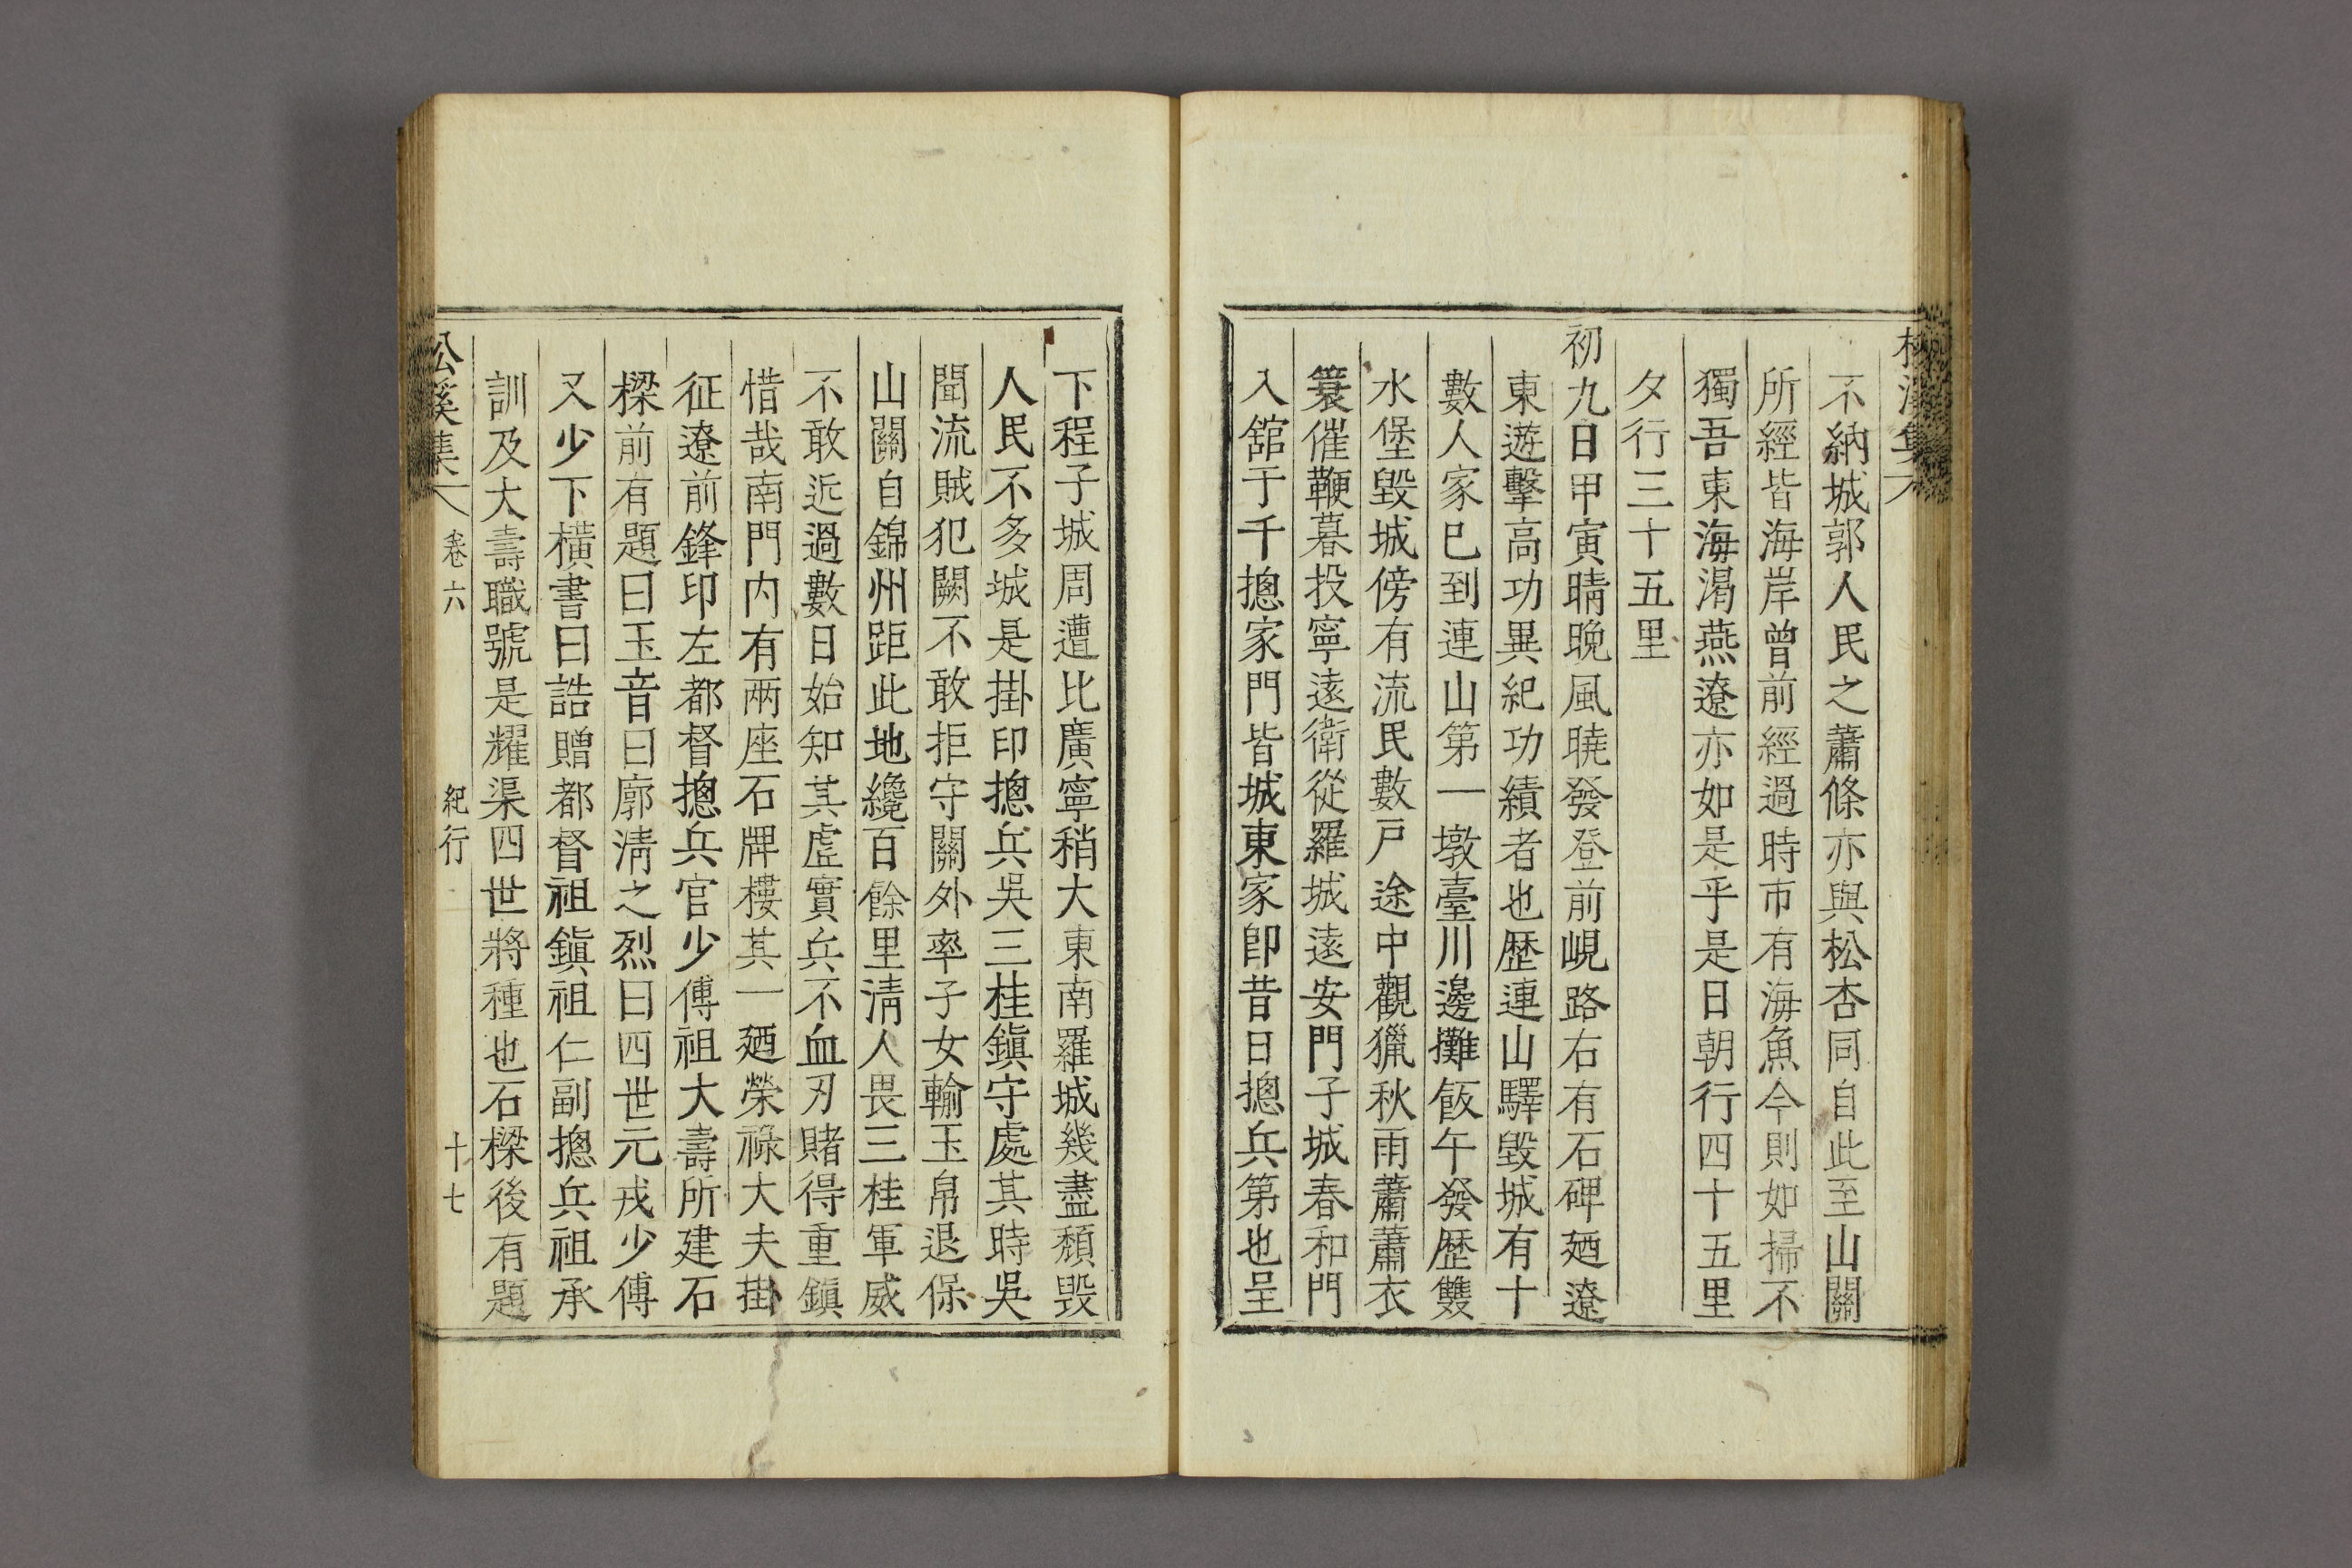 不納城郭人民之蕭條亦與松杏同自此至山關
所經皆海岸曾前經過時市有海魚今則如掃不
獨吾東海渴燕遼亦如是乎是日朝行四十五里
夕行三十五里
初九日甲寅晴晚風曉發登前峴路右有石碑廼遼
東遊擊高功異紀功績者也歷連山驛毀城有十
數人家已到連山第一墩臺川邊攤飯午發歷雙
水堡毀城傍有流民數戶途中觀獵秋雨蕭蕭衣
簑催鞭暮投寧遠衛從羅城遠安門子城春和門
入舘于千摠家門皆城東家卽昔日摠兵第也呈
下程子城周遭比廣寧稍大東南羅城幾盡頹毀
人民不多城是掛印摠兵吳三桂鎭守處其時吳
聞流賊犯闕不敢拒守關外率子女輸玉帛退保
山關自錦州距此地纔百餘里淸人畏三桂軍威
不敢近過數日始知其虛實兵不血刃賭得重鎭
惜哉南門内有兩座石牌樓其一廼榮祿大夫掛
征遼前鋒印左都督摠兵官少傅祖大壽所建石
樑前有題曰玉音曰廓淸之烈曰四世元戎少傅
又少下橫書曰誥贈都督祖鎭祖仁副摠兵祖承
訓及大壽職號是耀渠四世將種也石樑後有題
松溪集 卷六 紀行 十七